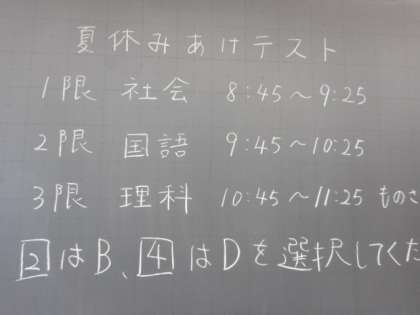 夏休みあけテスト
1限 社会 8:45～9:25
2限 国語 9:45～10:25
3限 理科 10:45～11:25 ものさ
2はB、4はDを選択してくだ